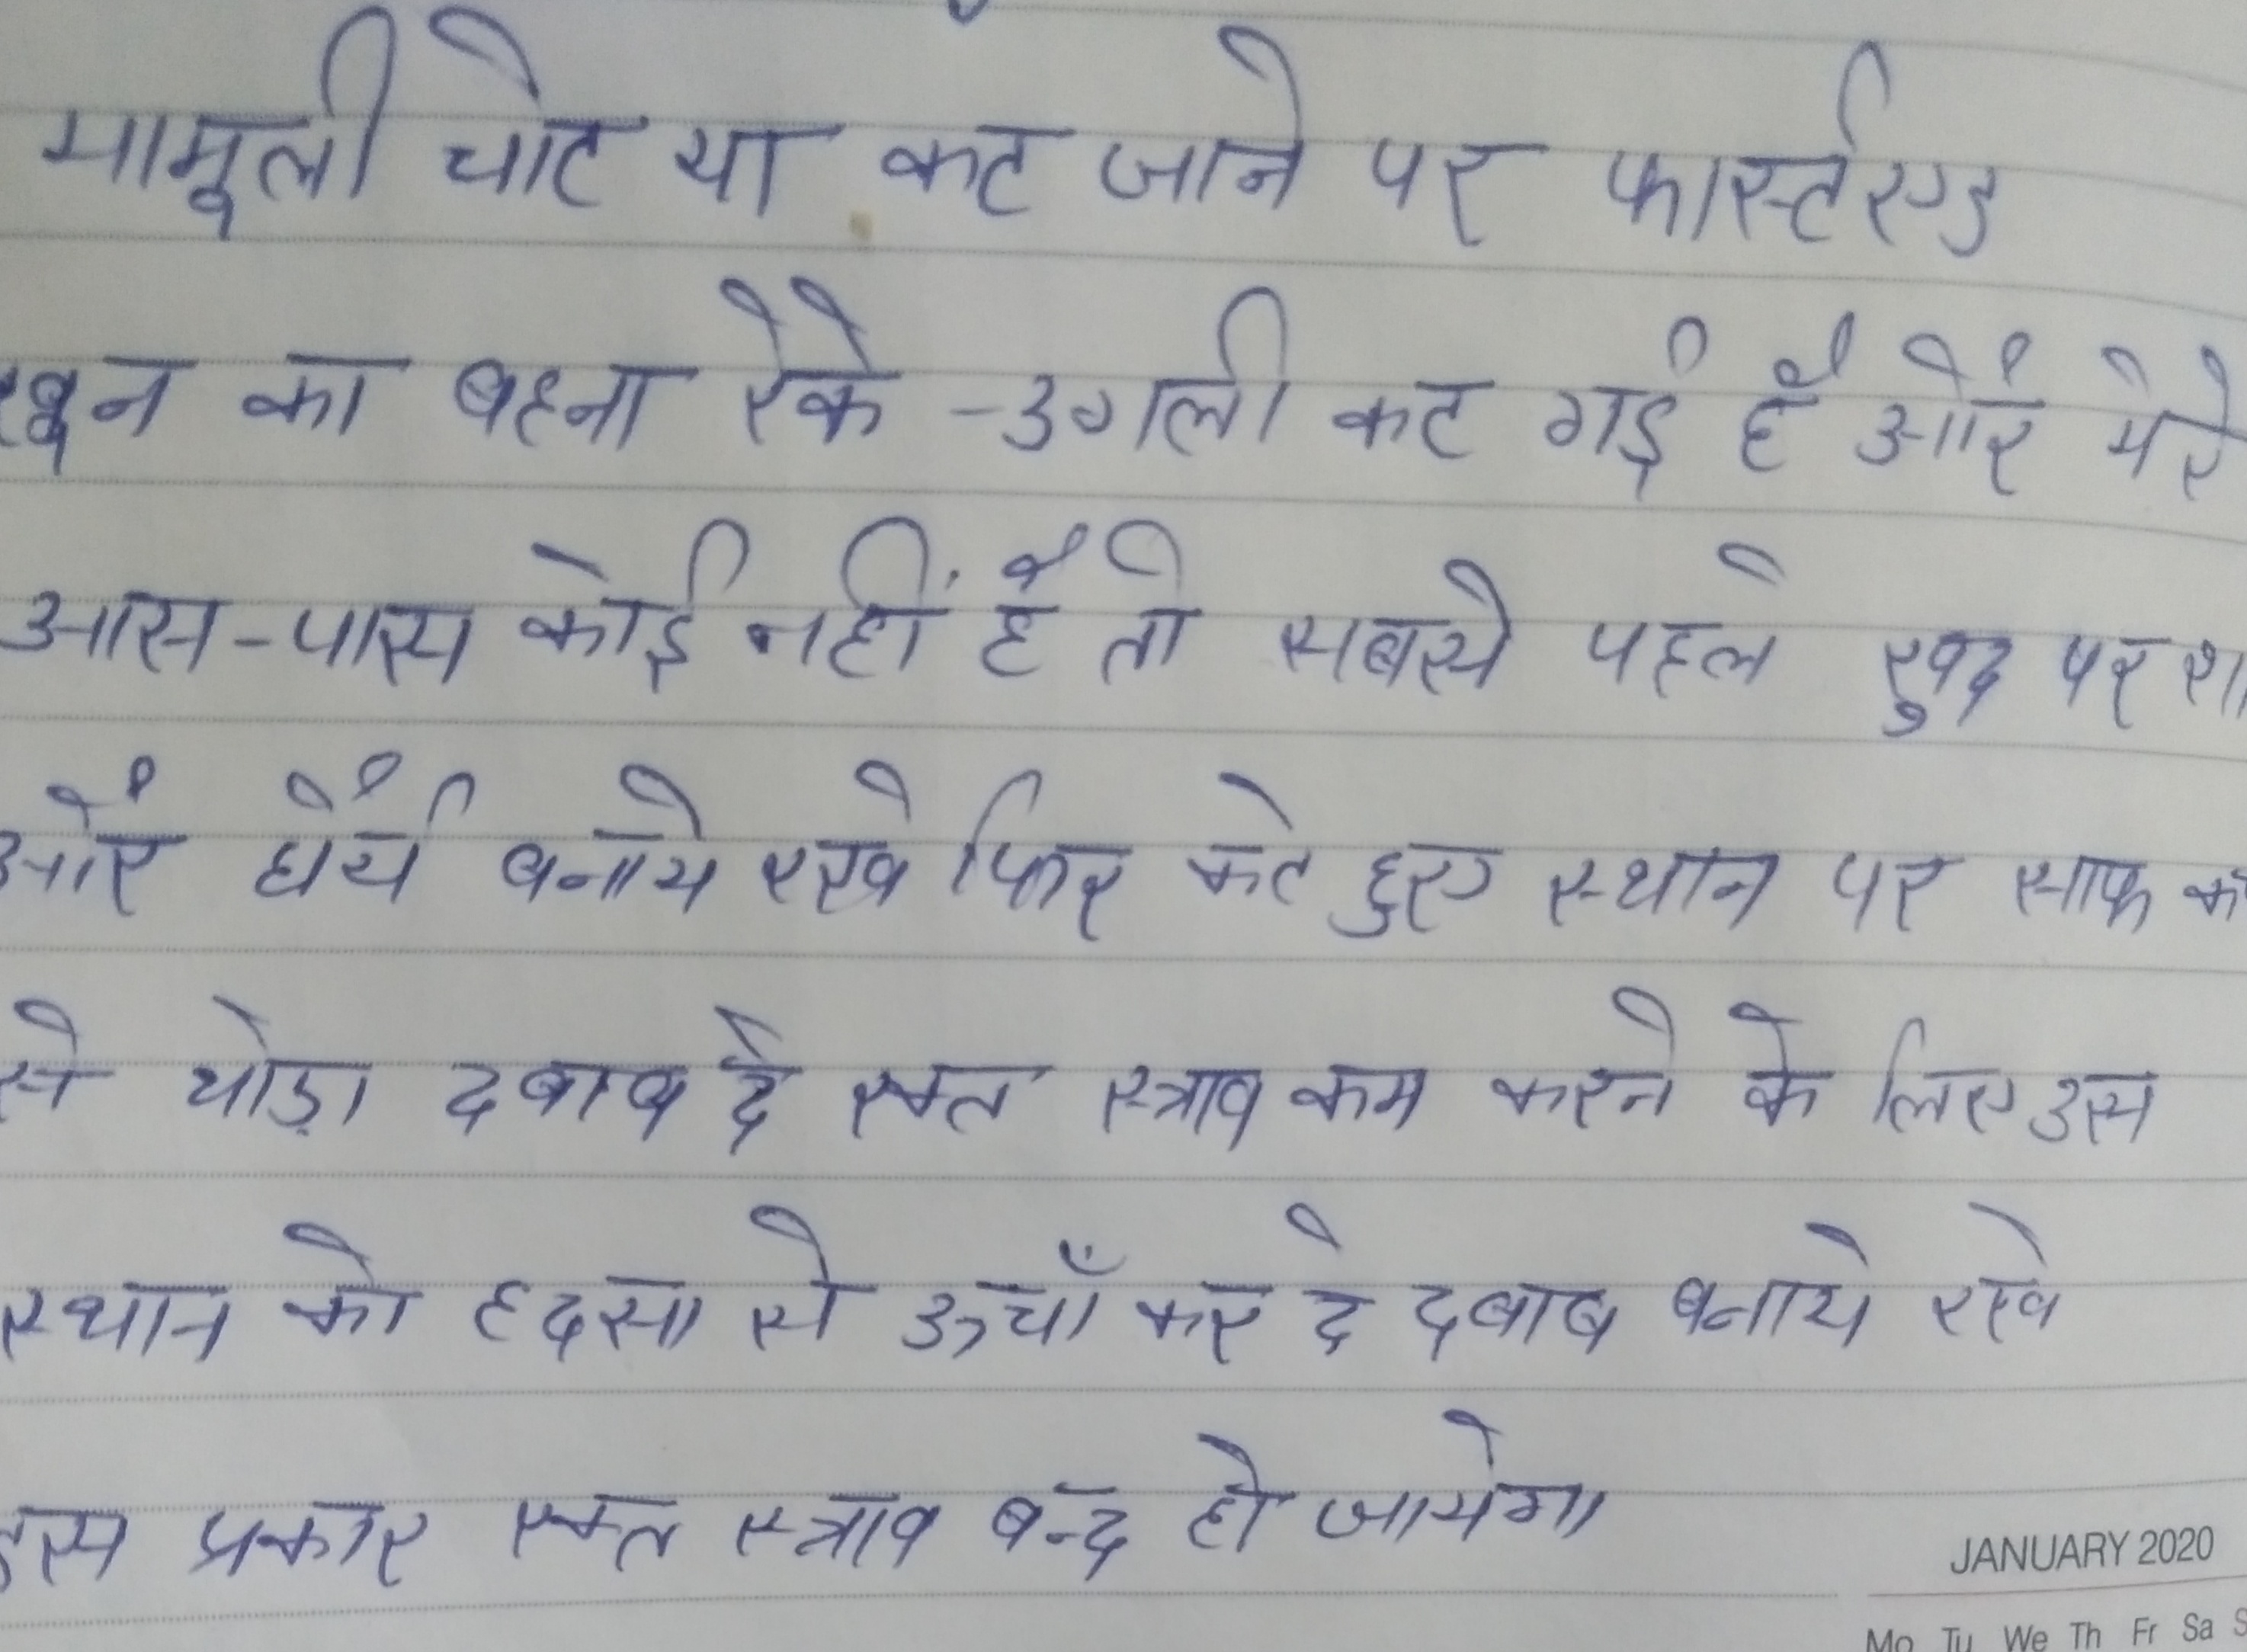 मामूली चोट या कट जाने पर फार्स्टएड
खून का बहना रोके - उगली कट गई है और मेरे
आस-पास कोई नहीं है तो सबसे पहले खुद पर
और धैर्य बनाये रखे फिर कटे हुए स्थान पर साफ
से थोड़ा दबाब दे रक्त स्त्राव कम करने के लिए उस
स्थान को हदसा से ऊचाँ कर दे दबाब बनाये रखे
इस प्रकार रक्त स्त्राव बन्द हो जायेगा
JANUARY 2020
Mo Tu We Th Fr Sa